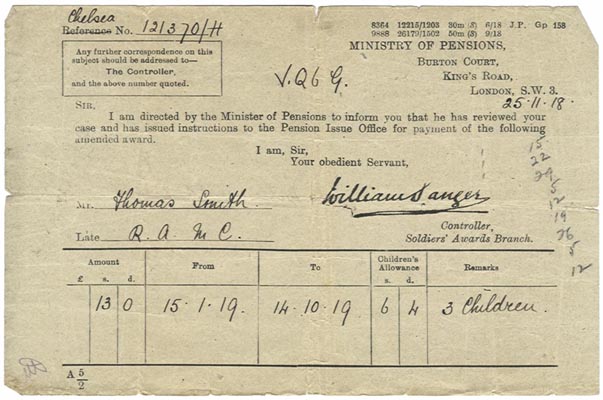 Chelsea
Reference No. 121370/H
8364 12215/1203 30m (3) 6/18 J.P. Gp 158
9888 26179/1502 50m (3) 9/18
Any further correspondence on this
subject should be addressed to—
The Controller,
and the above number quoted.
MINISTRY OF PENSIONS,
BURTON COURT,
KING'S ROAD,
LONDON, S.W. 3.
25·11·18.
SIR,
I am directed by the Minister of Pensions to inform you that he has reviewed your
case and has issued instructions to the Pension Issue Office for payment of the following
amended award.
I am, Sir,
Your obedient Servant,
15
22
29
5
12
19
26
5
12
Mr. Thomas Smith.
William Sanger
Late R. A. M. C.
Controller,
Soldiers' Awards Branch.
Amount From To Children's Allowance Remarks
£ s. d. s. d.
13 0 15·1·19. 14·10·19 6 4 3 Children.
A 5/2